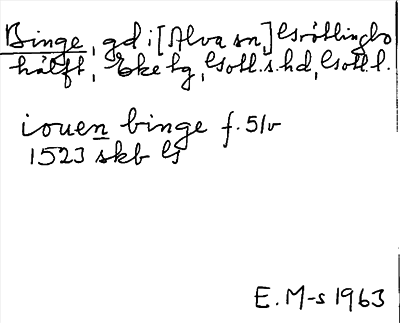 Binge, gd i [Alva sn,] Grötlingbo
hälft, Eke tg, Gotl. s. hd, Gotl. l.
iouen binge f. 51v
1523 skb G
E. M-s 1963